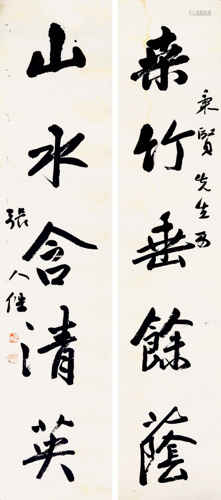 秉賢先生正
桑竹垂餘蔭
山水含清英
張人傑